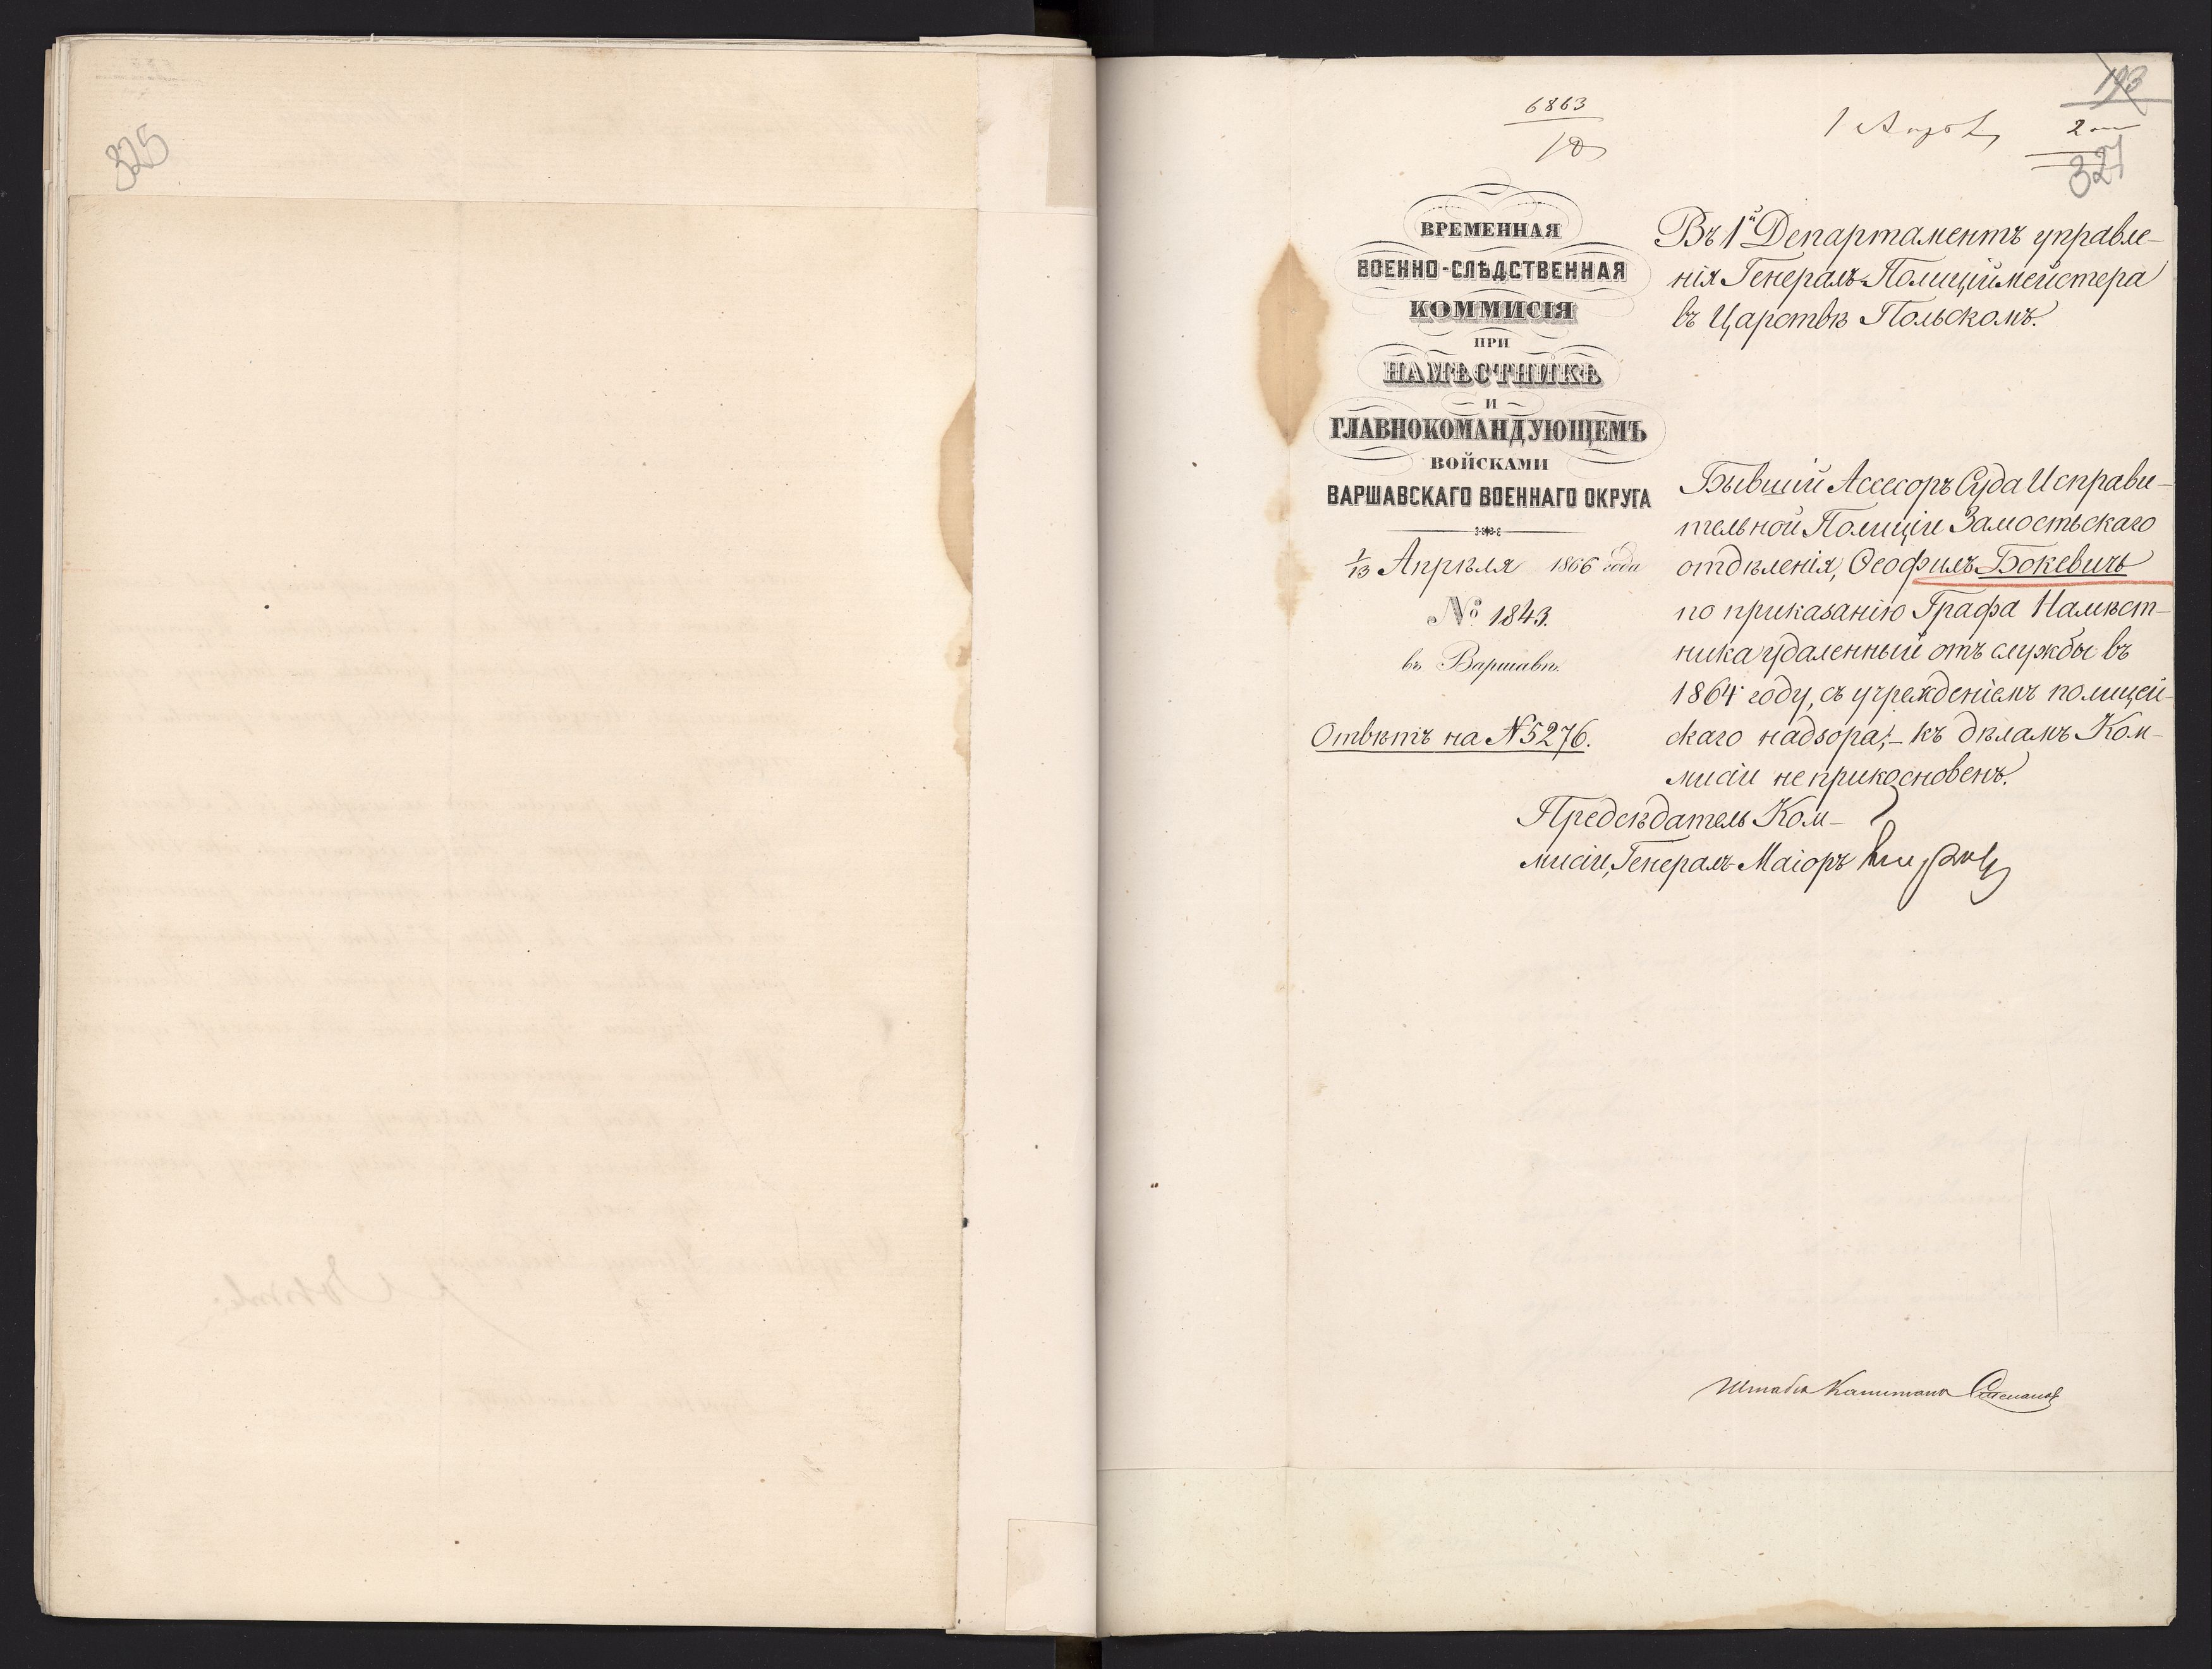 325
6863
10
1 Апрѣл
193
2
327
ВРЕМЕННАЯ
ВОЕННО-СЛѢДСТВЕННАЯ
КОММИСІЯ
ПРИ
НАМѢСТНИКѢ
И
ГЛАВНОКОМАНДУЮЩЕМЪ
ВОЙСКАМИ
ВАРШАВСКАГО ВОЕННАГО ОКРУГА
1/13 Апрѣля 1866 года
№ 1843.
въ Варшавѣ.
Отвѣтъ на №5276.
Въ 1й Департаментъ управле-
нія Генералъ-Полицiймейстера
въ Царствѣ Польскомъ.
Бывшій Ассесоръ Суда Исправи-
тельной Полиціи Замостьскаго
отдѣленія, Ѳеофилъ Бокевичъ
по приказанію Графа Намѣст-
ника удаленный отъ службы въ
1864 году, съ учрежденіемъ полицей-
скаго надзора,- къ дѣламъ Ком-
мисіи неприкосновенъ.
Предсѣдатель Ком-
мисіи, Генералъ-Маіоръ
Штабсъ Капитанъ Степановъ